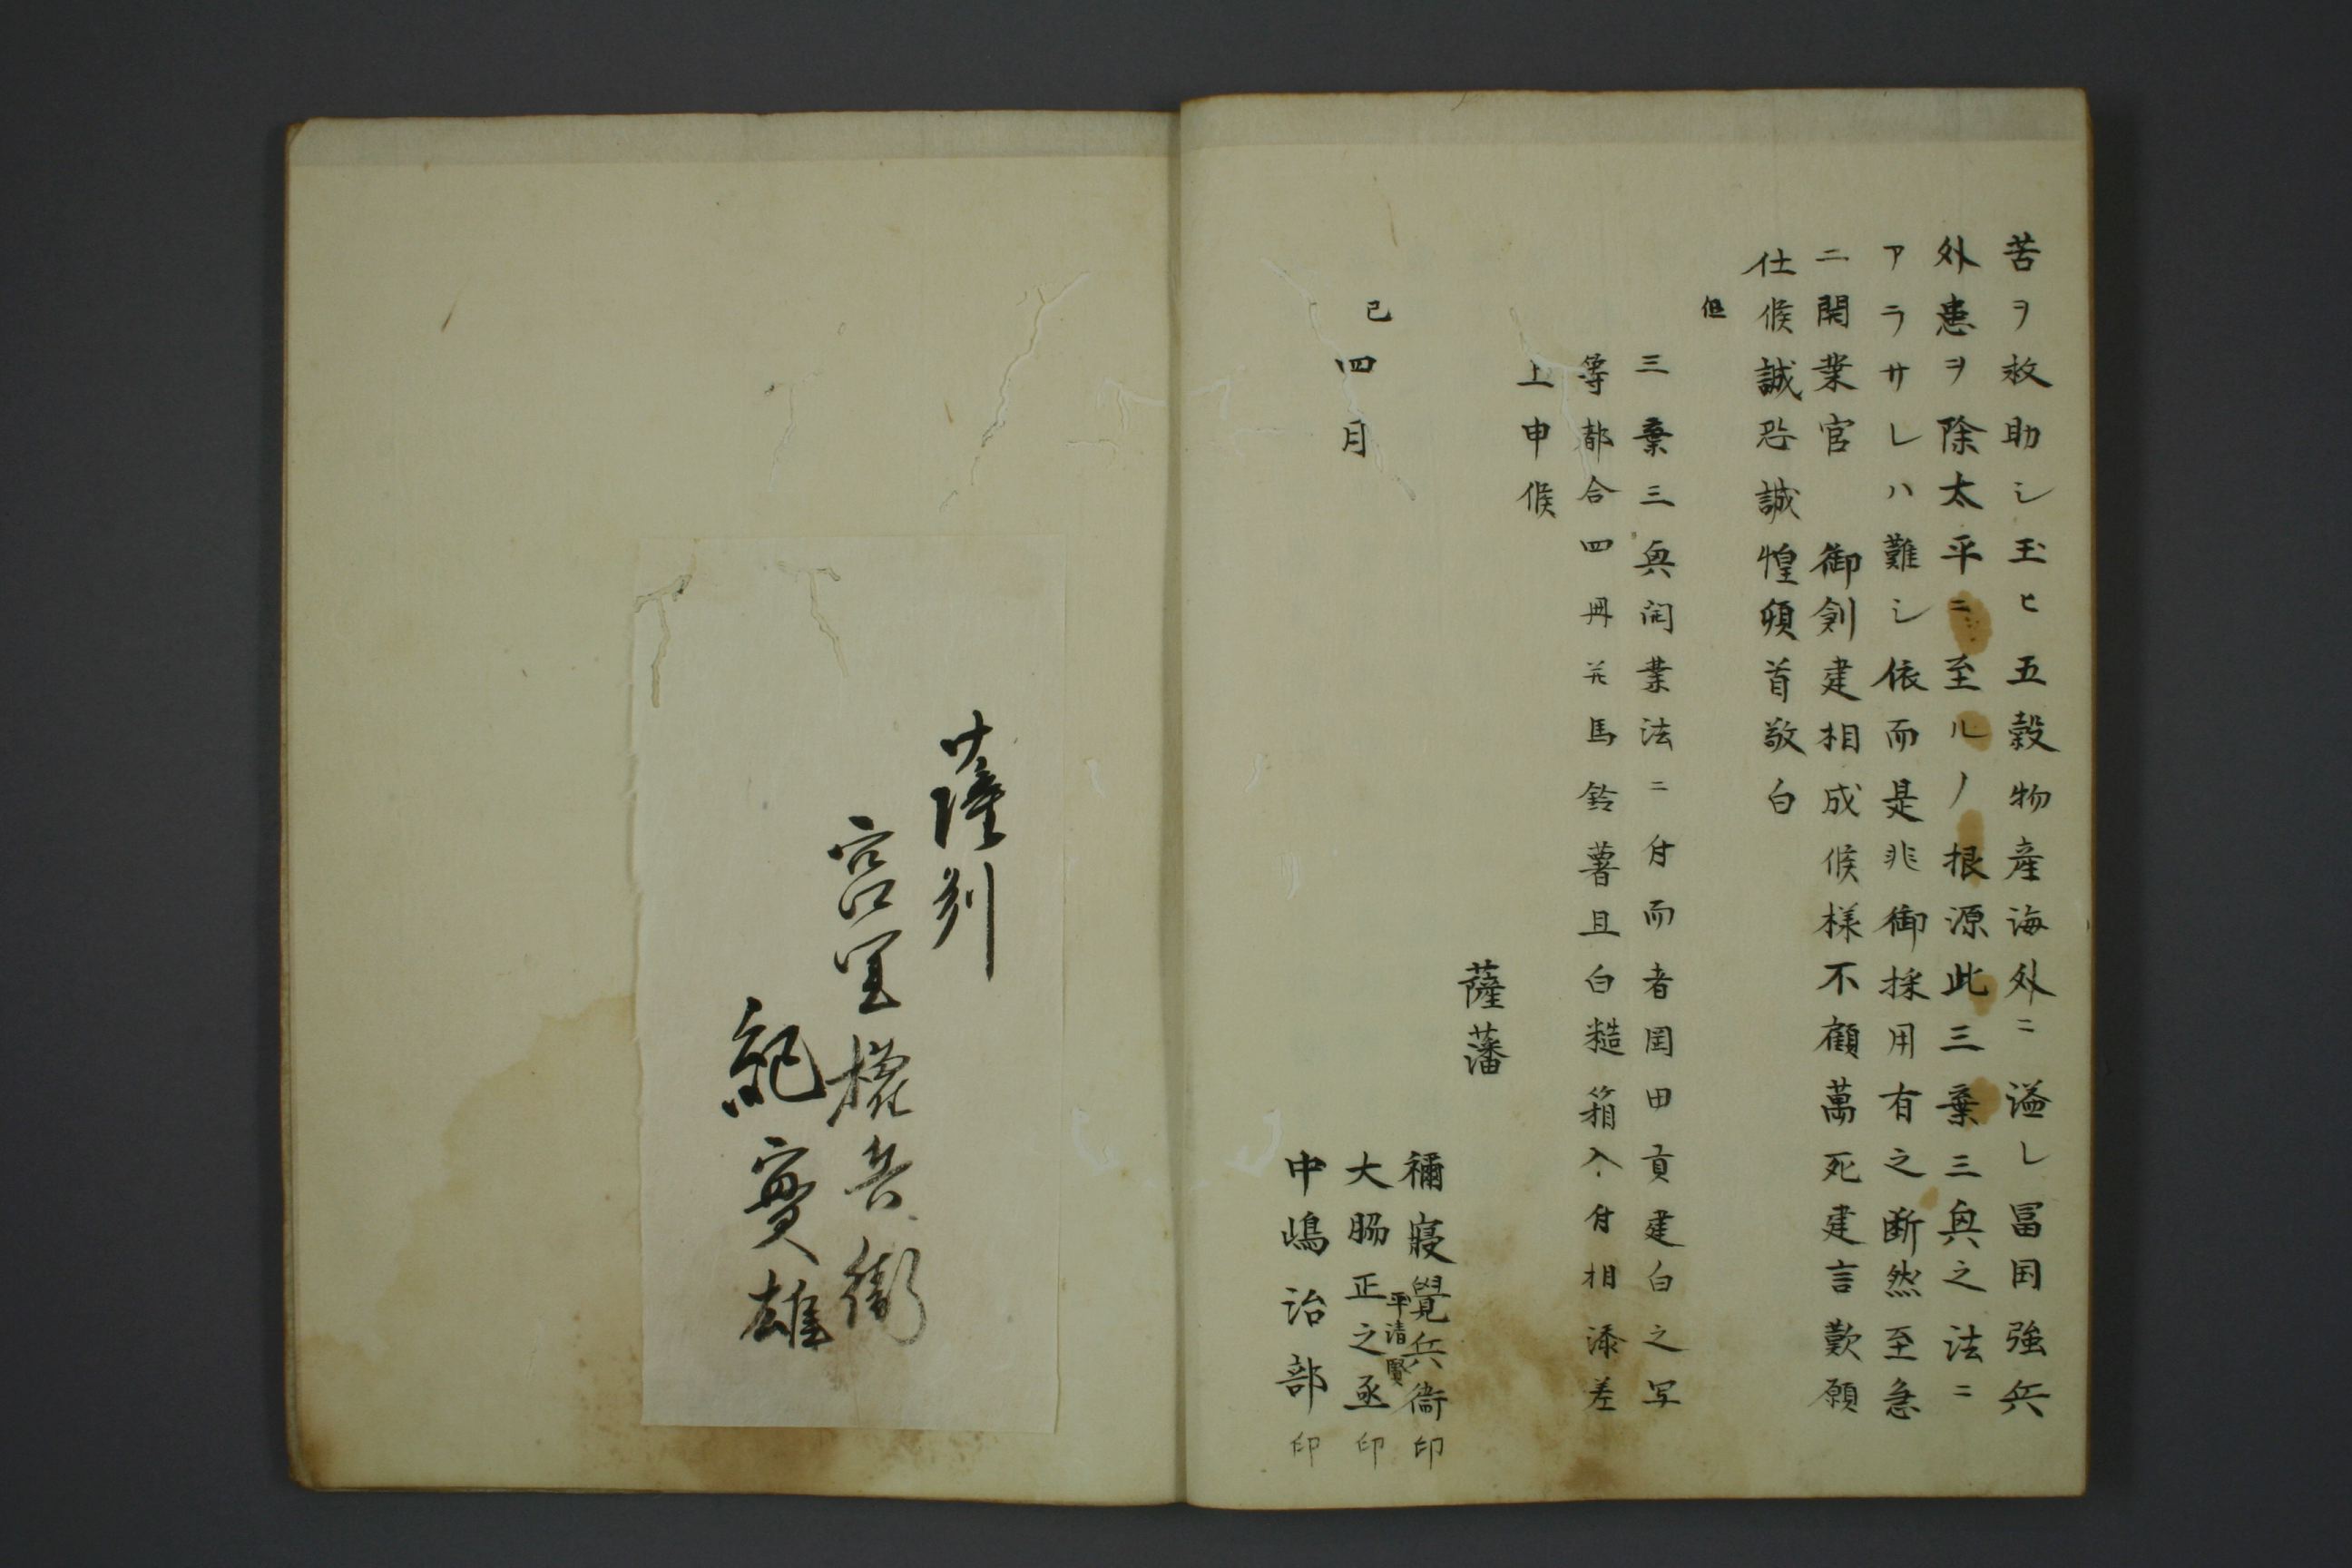 苦ヲ救助シ玉ヒ五穀物産海外ニ溢レ冨国強兵
外患ヲ除太平ニ至ルノ根源此三棄三興之法ニ
アラサレハ難シ依而是非御採用有之断然至急
ニ開業官 御創建相成候様不顧萬死建言歎願
仕候誠恐誠惶頓首敬白
但
三棄三興開業法ニ付而者岡田貢建白之写
等都合四冊并馬鈴薯且白糕箱入付相添差
上申候
薩藩
禰寝覺兵衛印
平清賢
大脇正之丞印
巳四月
中嶋治部印
薩州
宮里権兵衛
紀實雄